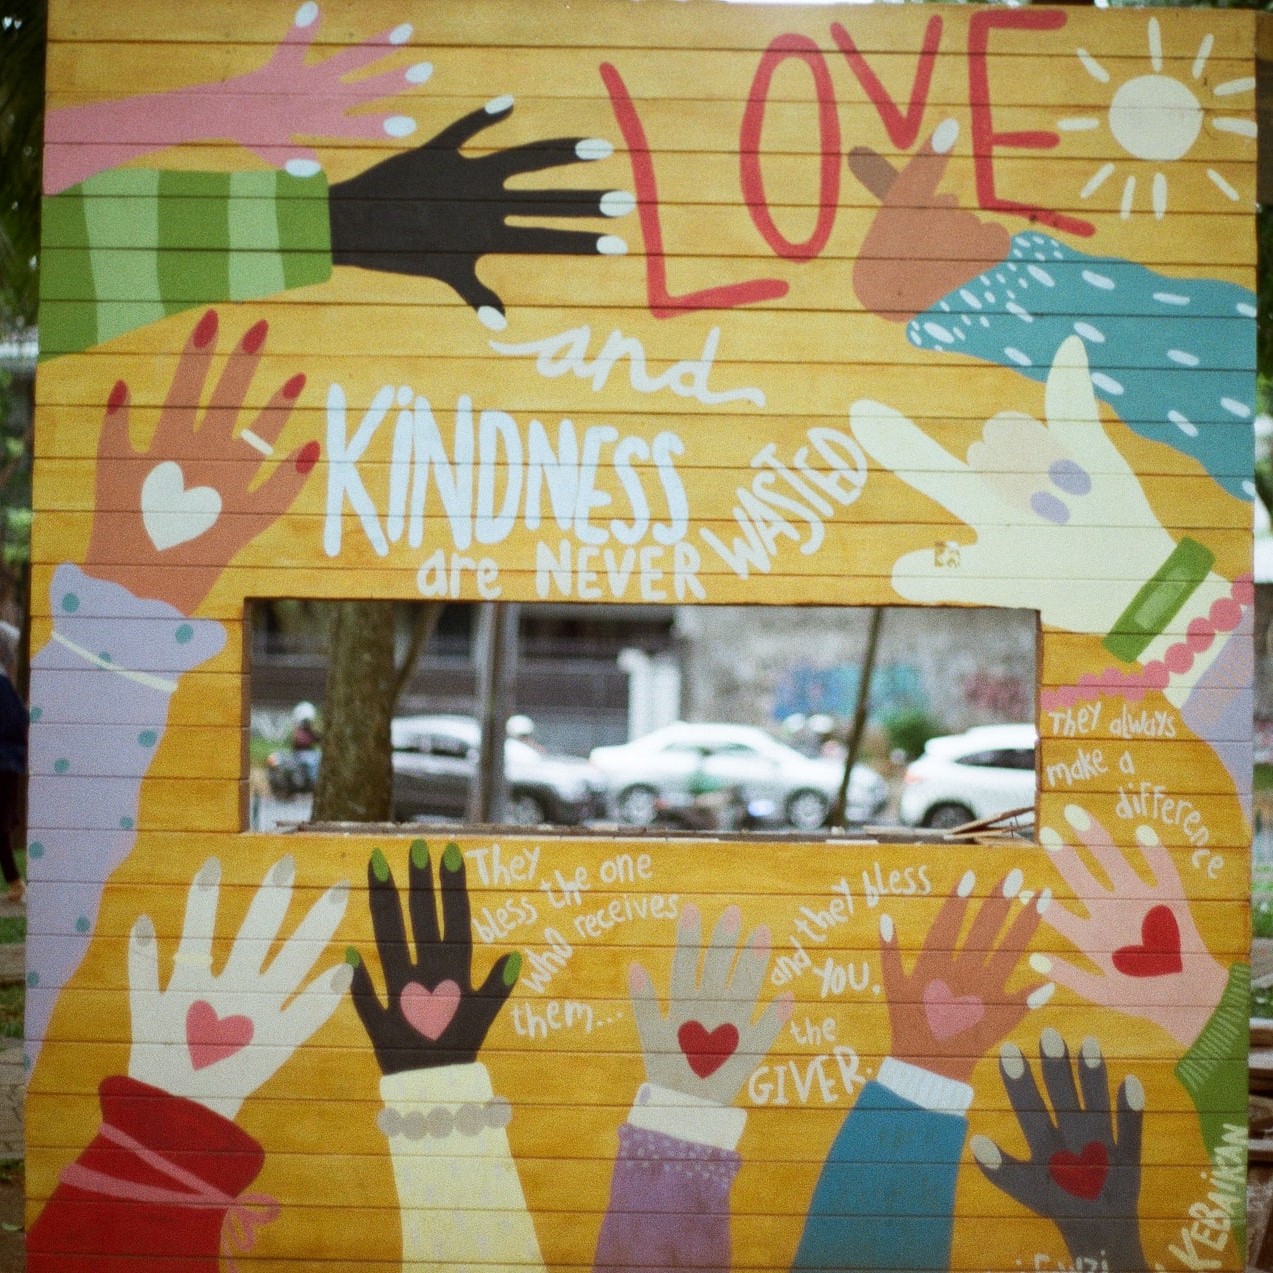 LOVE
and
KiNDNESS
are NEVER WASTED
They always
make a
difference
They
bless the one
who receives
them...
and they bless
YOU,
the
GIVER.
KEBAiKAN